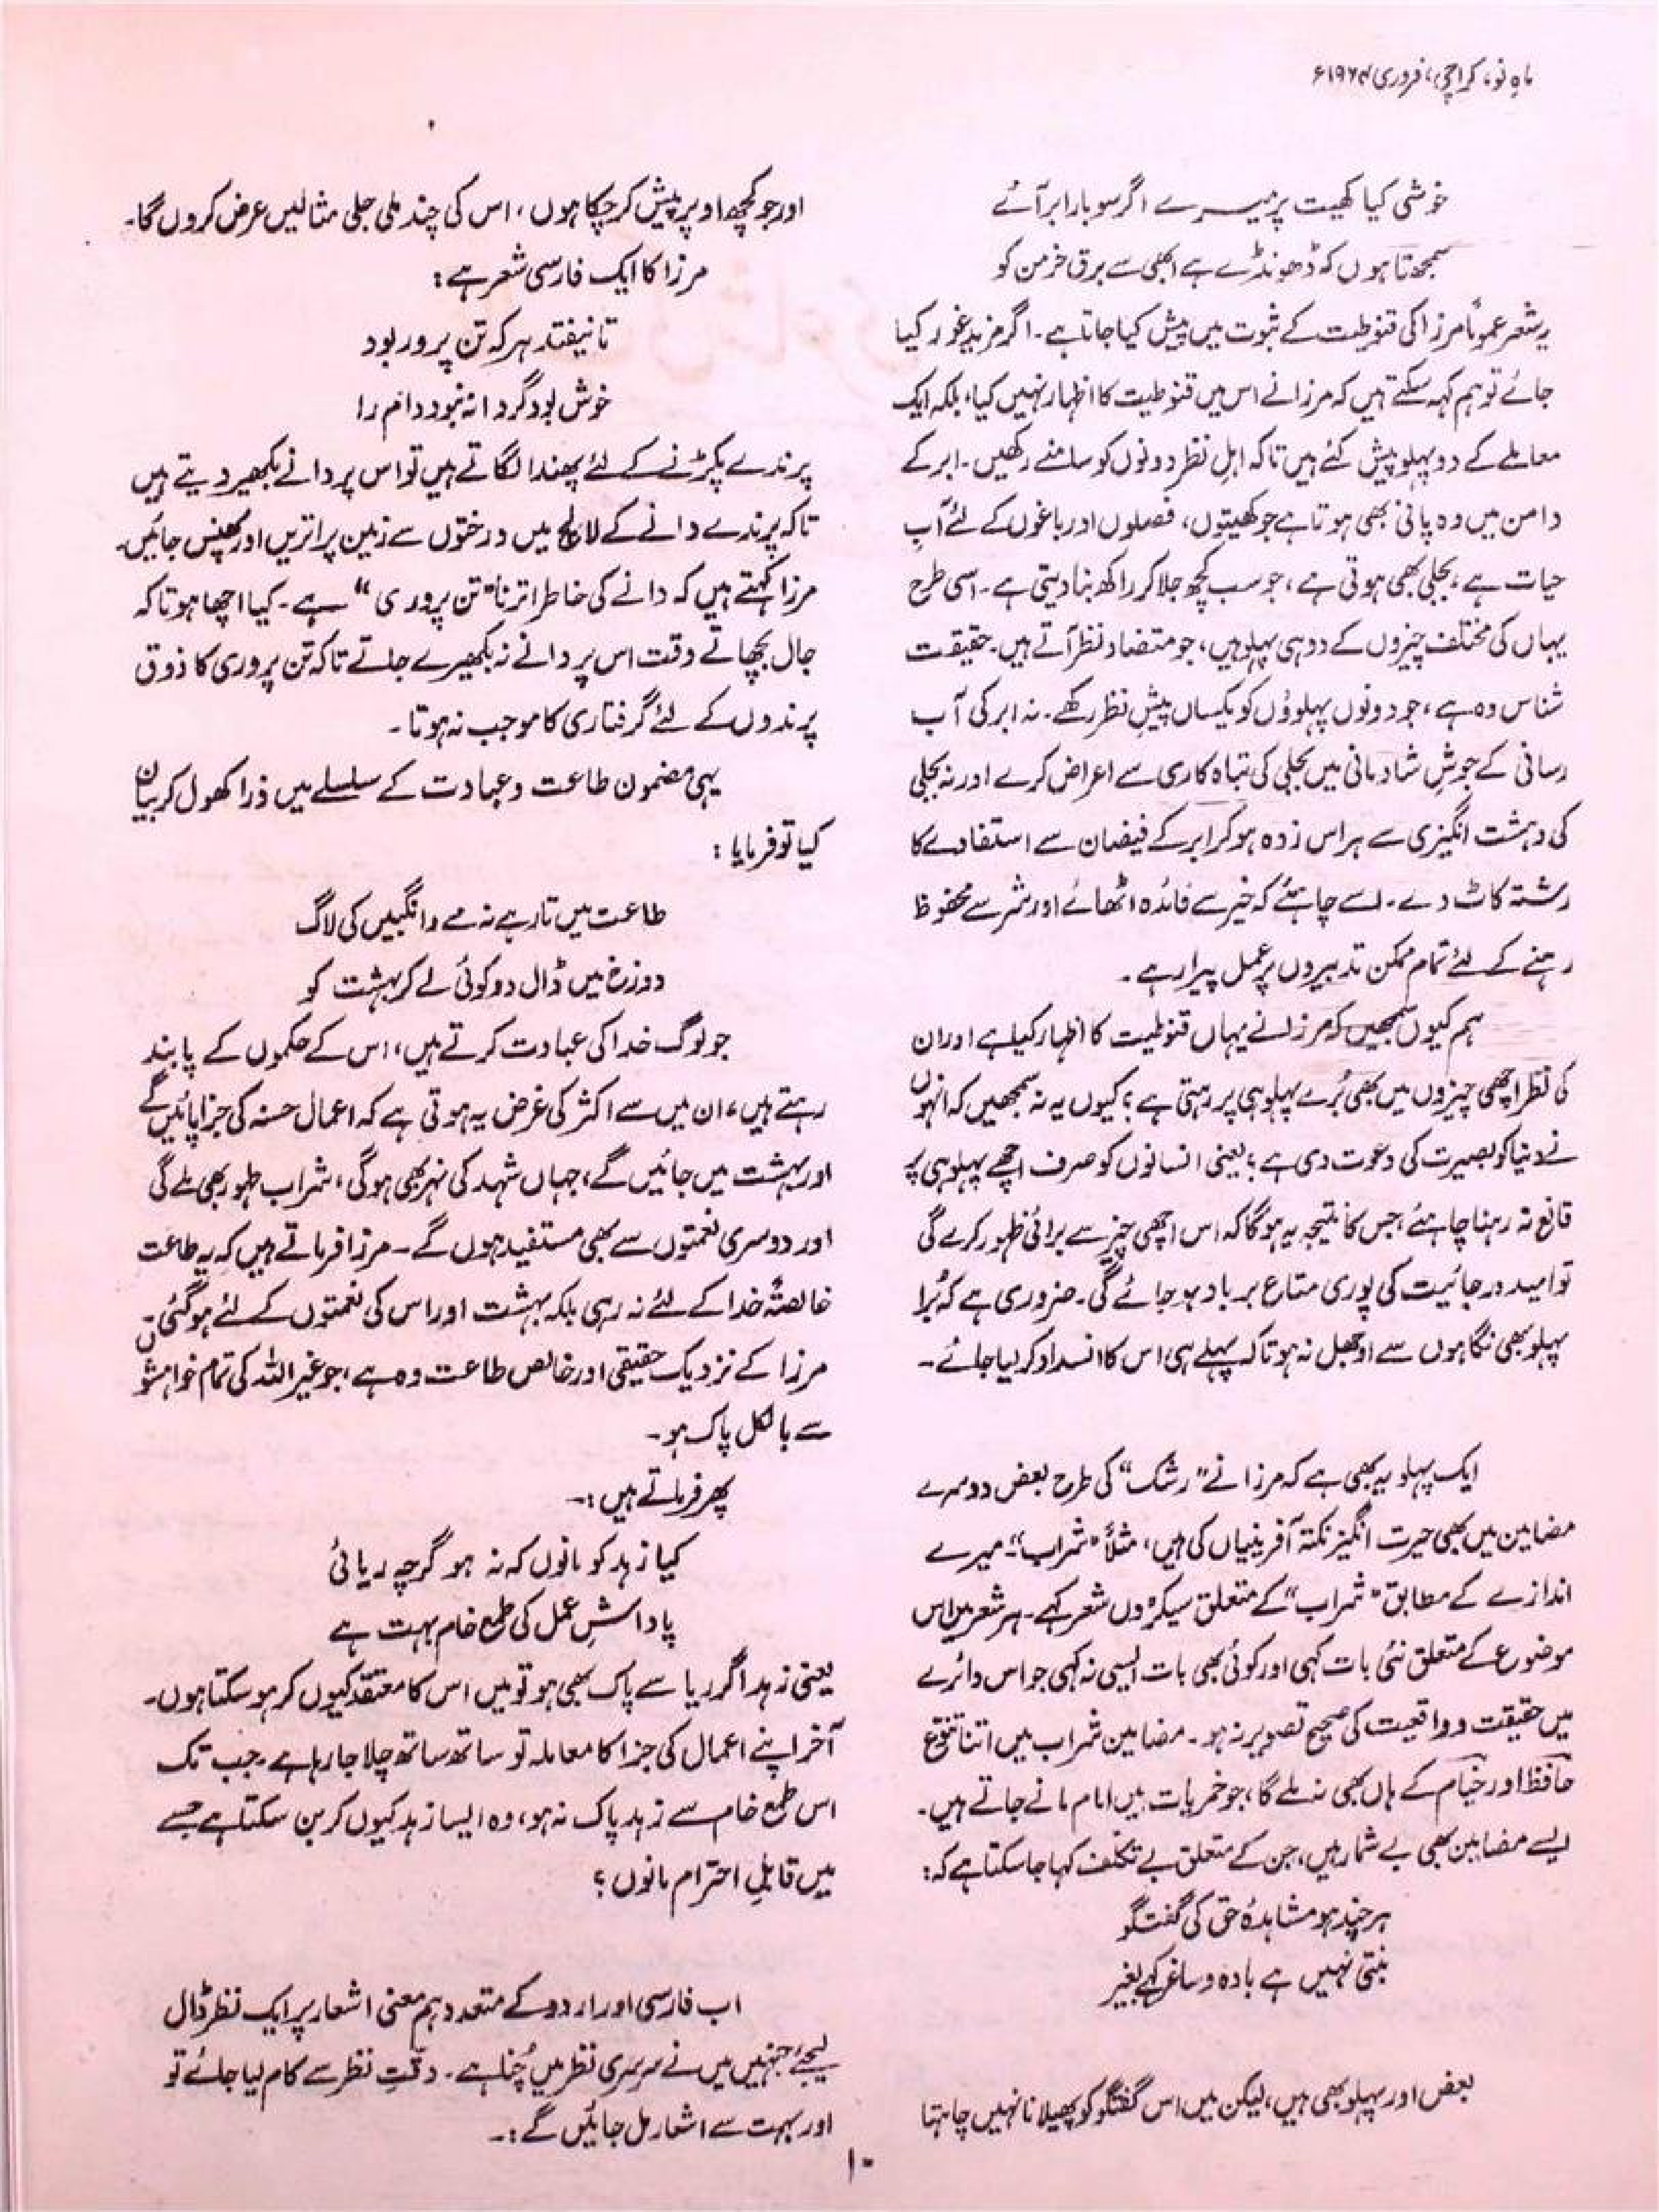 ماہِ نو، کراچی، فروری ۱۹۶۴ء
خوشی کیا کھیت پر میرے اگر سو بار ابر آئے
سمجھتا ہوں کہ ڈھونڈے ہے ابھی سے برق خرمن کو
یہ شعر عموماً مرزا کی قنوطیت کے ثبوت میں پیش کیا جاتا ہے۔ اگر مزید غور کیا
جائے تو ہم کہہ سکتے ہیں کہ مرزا نے اس میں قنوطیت کا اظہار نہیں کیا، بلکہ ایک
معاملے کے دو پہلو پیش کئے ہیں تاکہ اہلِ نظر دونوں کو سامنے رکھیں۔ ابر کے
دامن میں وہ پانی بھی ہوتا ہے جو کھیتوں، فصلوں اور باغوں کے لئے آبِ
حیات ہے، بجلی بھی ہوتی ہے، جو سب کچھ جلا کر راکھ بنا دیتی ہے۔ اسی طرح
یہاں کی مختلف چیزوں کے دو ہی پہلو ہیں، جو متضاد نظر آتے ہیں۔ حقیقت
شناس وہ ہے، جو دونوں پہلوؤں کو یکساں پیشِ نظر رکھے۔ نہ ابر کی آب
رسانی کے جوشِ شادمانی میں بجلی کی تباہ کاری سے اعراض کرے اور نہ بجلی
کی دہشت انگیزی سے ہراس زدہ ہو کر ابر کے فیضان سے استفادے کا
رشتہ کاٹ دے۔ اسے چاہئے کہ خیر سے فائدہ اٹھائے اور شر سے محفوظ
رہنے کے لئے تمام ممکن تدبیروں پر عمل پیرا رہے۔
ہم کیوں سمجھیں کہ مرزا نے یہاں قنوطیت کا اظہار کیا ہے اور ان
کی نظر اچھی چیزوں میں بھی بُرے پہلو ہی پر رہتی ہے؟ کیوں یہ نہ سمجھیں کہ انہوں
نے دنیا کو بصیرت کی دعوت دی ہے؛ یعنی انسانوں کو صرف اچھے پہلو ہی پر
قانع نہ رہنا چاہئے، جس کا نتیجہ یہ ہوگا کہ اس اچھی چیز سے برائی ظہور کرے گی
تو امید و رجائیت کی پوری متاع برباد ہو جائے گی۔ ضروری ہے کہ بُرا
پہلو بھی نگاہوں سے اوجھل نہ ہو تاکہ پہلے ہی اس کا انسداد کر لیا جائے۔
ایک پہلو یہ بھی ہے کہ مرزا نے ”رشک“ کی طرح بعض دوسرے
مضامین میں بھی حیرت انگیز نکتہ آفرینیاں کی ہیں، مثلاً ”شراب“۔ میرے
اندازے کے مطابق ”شراب“ کے متعلق سیکڑوں شعر کہے۔ ہر شعر میں اس
موضوع کے متعلق نئی بات کہی اور کوئی بھی بات ایسی نہ کہی جو اس دائرے
میں حقیقت و واقعیت کی صحیح تصویر نہ ہو۔ مضامین شراب میں اتنا تنوع
حافظ اور خیام کے ہاں بھی نہ ملے گا، جو خمریات میں امام مانے جاتے ہیں۔
ایسے مضامین بھی بے شمار ہیں، جن کے متعلق بے تکلف کہا جا سکتا ہے کہ:
ہر چند ہو مشاہدۂ حق کی گفتگو
بنتی نہیں ہے بادہ و ساغر کہے بغیر
بعض اور پہلو بھی ہیں، لیکن میں اس گفتگو کو پھیلانا نہیں چاہتا
اور جو کچھ اوپر پیش کر چکا ہوں، اس کی چند ملی جلی مثالیں عرض کروں گا۔
مرزا کا ایک فارسی شعر ہے:
تا نیفتد ہر کہ تن پرور بود
خوش بود گر دانہ نبود دام را
پرندے پکڑنے کے لئے پھندا لگاتے ہیں تو اس پر دانے بکھیر دیتے ہیں
تاکہ پرندے دانے کے لالچ میں درختوں سے زمین پر اتریں اور پھنس جائیں۔
مرزا کہتے ہیں کہ دانے کی خاطر اترنا ”تن پروری“ ہے۔ کیا اچھا ہوتا کہ
جال بچھاتے وقت اس پر دانے نہ بکھیرے جاتے تاکہ تن پروری کا ذوق
پرندوں کے لئے گرفتاری کا موجب نہ ہوتا۔
یہی مضمون طاعت و عبادت کے سلسلے میں ذرا کھول کر بیان
کیا تو فرمایا:
طاعت میں تا رہے نہ مے و انگبیں کی لاگ
دوزخ میں ڈال دو کوئی لے کر بہشت کو
جو لوگ خدا کی عبادت کرتے ہیں، اس کے حکموں کے پابند
رہتے ہیں، ان میں سے اکثر کی غرض یہ ہوتی ہے کہ اعمال حسنہ کی جزا پائیں گے
اور بہشت میں جائیں گے، جہاں شہد کی نہر بھی ہوگی، شراب طہور بھی ملے گی
اور دوسری نعمتوں سے بھی مستفید ہوں گے۔ مرزا فرماتے ہیں کہ یہ طاعت
خالصۃً خدا کے لئے نہ رہی بلکہ بہشت اور اس کی نعمتوں کے لئے ہوگئی۔
مرزا کے نزدیک حقیقی اور خالص طاعت وہ ہے، جو غیر اللہ کی تمام خواہشوں
سے بالکل پاک ہو۔
پھر فرماتے ہیں:۔
کیا زہد کو مانوں کہ نہ ہو گرچہ ریائی
پاداشِ عمل کی طمع خام بہت ہے
یعنی زہد اگر ریا سے پاک بھی ہو تو میں اس کا معتقد کیوں کر ہو سکتا ہوں۔
آخر اپنے اعمال کی جزا کا معاملہ تو ساتھ ساتھ چلا جا رہا ہے۔ جب تک
اس طمع خام سے زہد پاک نہ ہو، وہ ایسا زہد کیوں کر بن سکتا ہے جسے
میں قابلِ احترام مانوں؟
اب فارسی اور اردو کے متعدد ہم معنی اشعار پر ایک نظر ڈال
لیجئے، جنہیں میں نے سرسری نظر میں چُنا ہے۔ دقّتِ نظر سے کام لیا جائے تو
اور بہت سے اشعار مل جائیں گے:۔
۱۰